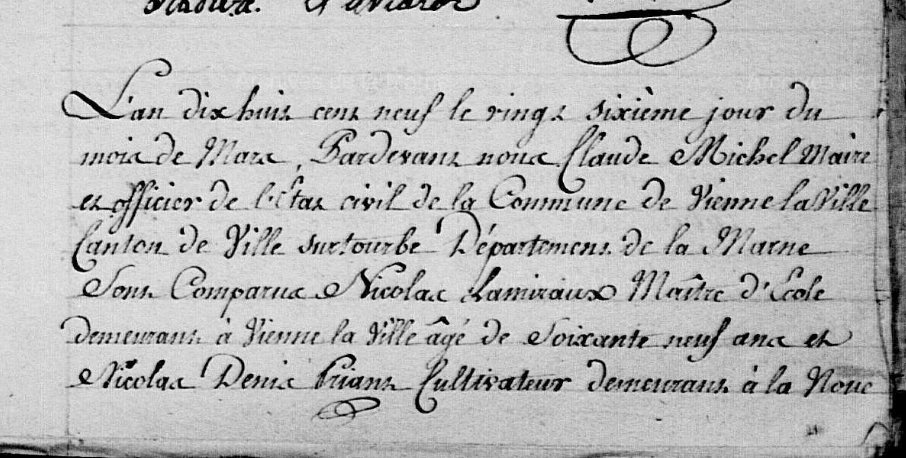 L'an dix huit cent neuf le vingt sixième jour du
mois de Mars, Pardevant nous Claude Michel Maire
et officier de l'Etat civil de la Commune de Vienne la Ville
Canton de Ville surtourbe Département de la Marne
Sont Comparus Nicolas Lamiraux Maître d'Ecole
demeurant à Vienne la Ville âgé de Soixante neuf ans et
Nicolas Denis Priant Cultivateur demeurant à la Noue